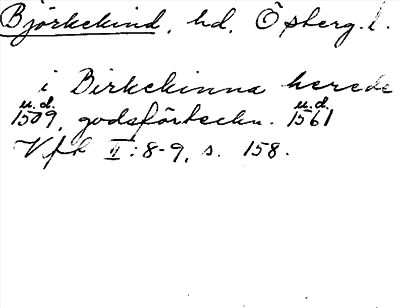 Björkekind, hd, Ö sberg. l.
i Birkekinna herede
u.d. u.d.
1509, godsförteckn. 1561
Vfk II: 8-9, s. 158.